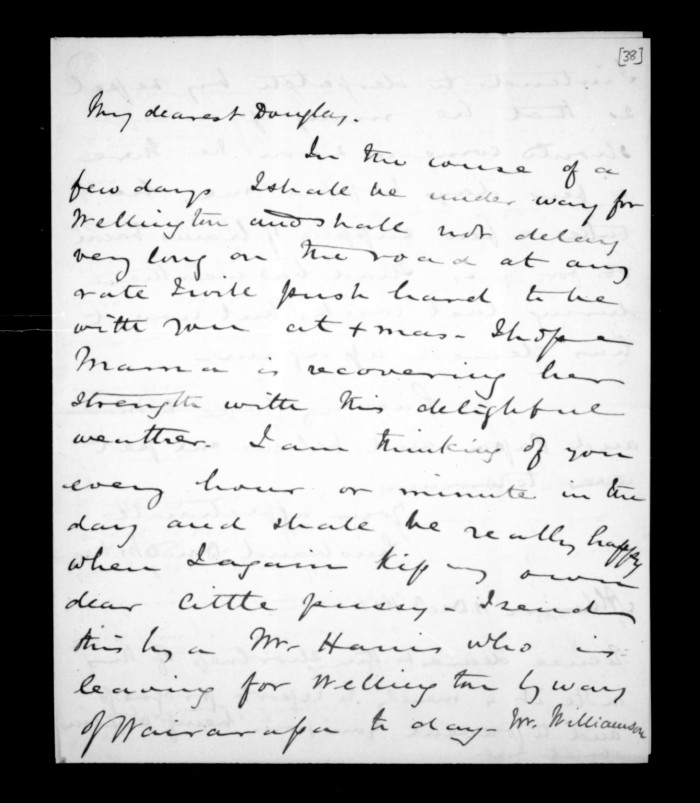 [38]
My dearest Douglas.
In the course of a
few days I shall be under way for
Wellington and shall not delay
very long on the road at any
rate I will push hard to be
with you at Xmas - I hope
Mama is recovering her
strength with this delightful
weather. I am thinking of you
every hour or minute in the
day and shall be really happy
when I again kiss my own
dear little pussy - I send
this by a Mr. Harris who is
leaving for Wellington by way
of Wairarapa to day - Mr. Williamson